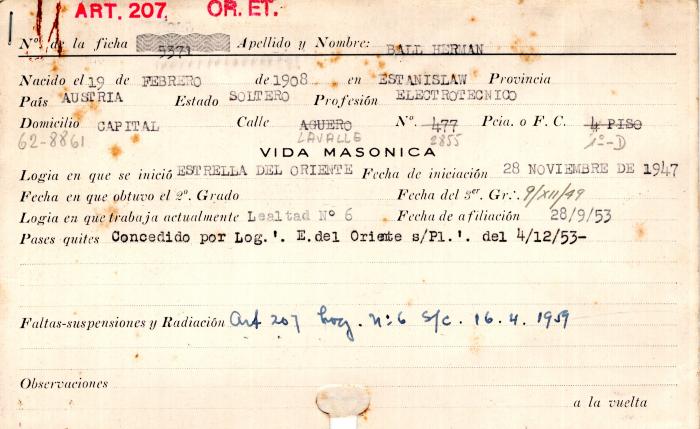 ART. 207. OR. ET.
Nº de la ficha 5371 Apellido y Nombre: BALL HERMAN
Nacido el 19 de FEBRERO de 1908 en ESTANISLAW Provincia
País AUSTRIA Estado SOLTERO Profesión ELECTROTECNICO
Domicilio CAPITAL Calle AGUERO Nº. 477 Pcia. o F. C. 4 PISO
62-8861 LAVALLE 2855 1º-D
VIDA MASONICA
Logia en que se inició ESTRELLA DEL ORIENTE Fecha de iniciación 28 NOVIEMBRE DE 1947
Fecha en que obtuvo el 2º. Grado Fecha del 3er. Gr∴. 9/XII/49
Logia en que trabaja actualmente Lealtad Nº 6 Fecha de afiliación 28/9/53
Pases quites Concedido por Log.'. E.del Oriente s/Pl.'. del 4/12/53-
Faltas-suspensiones y Radiación Art 207 Log. nº6 S/c. 16.4.1959
Observaciones
a la vuelta